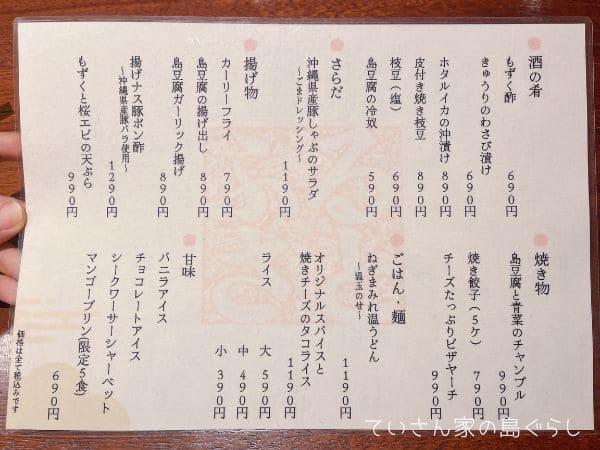 酒の肴
もずく酢 690円
きゅうりのわさび漬け 690円
ホタルイカの沖漬け 890円
皮付き焼き枝豆 890円
枝豆(塩) 690円
島豆腐の冷奴 590円
さらだ
沖縄県産豚しゃぶのサラダ
～ごまドレッシング～ 1190円
揚げ物
カーリーフライ 790円
島豆腐の揚げ出し 890円
島豆腐ガーリック揚げ 890円
揚げナス豚ポン酢
～沖縄県産豚バラ使用～ 1290円
もずくと桜エビの天ぷら 990円
焼き物
島豆腐と青菜のチャンプル 990円
焼き餃子(5ケ) 790円
チーズたっぷりピザヤーチ 990円
ごはん・麺
ねぎまみれ温うどん
～温玉のせ～ 1190円
オリジナルスパイスと
焼きチーズのタコライス 1190円
ライス 大 590円
中 490円
小 390円
甘味
バニラアイス
チョコレートアイス
シークワーサーシャーベット
マンゴープリン(限定5食)
690円
価格は全て税込みです
ていさん家の島ぐらし